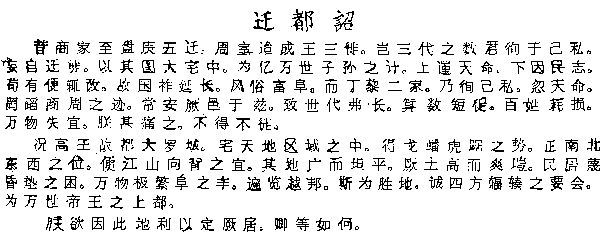 迁都詔
昔商家至盘庚五迁。周室逮成王三徙。岂三代之数君徇于己私。
妄自迁徙。以其图大宅中。为亿万世子孙之计。上谨天命。下因民志。
苟有便辄改。故国祚延长。风俗富阜。而丁黎二家。乃徇己私。忽天命。
罔蹈商周之迹。常安厥邑于兹。致世代弗长。算数短促。百姓耗损。
万物失宜。朕甚痛之。不得不徙。
况高王故都大罗城。宅天地区域之中。得龙蟠虎踞之势。正南北
东西之位。便江山向背之宜。其地广而坦平。厥土高而爽垲。民居蔑
昏垫之困。万物极繁阜之丰。遍览越邦。斯为胜地。诚四方辐辏之要会。
为万世帝王之上都。
朕欲因此地利以定厥居。卿等如何。